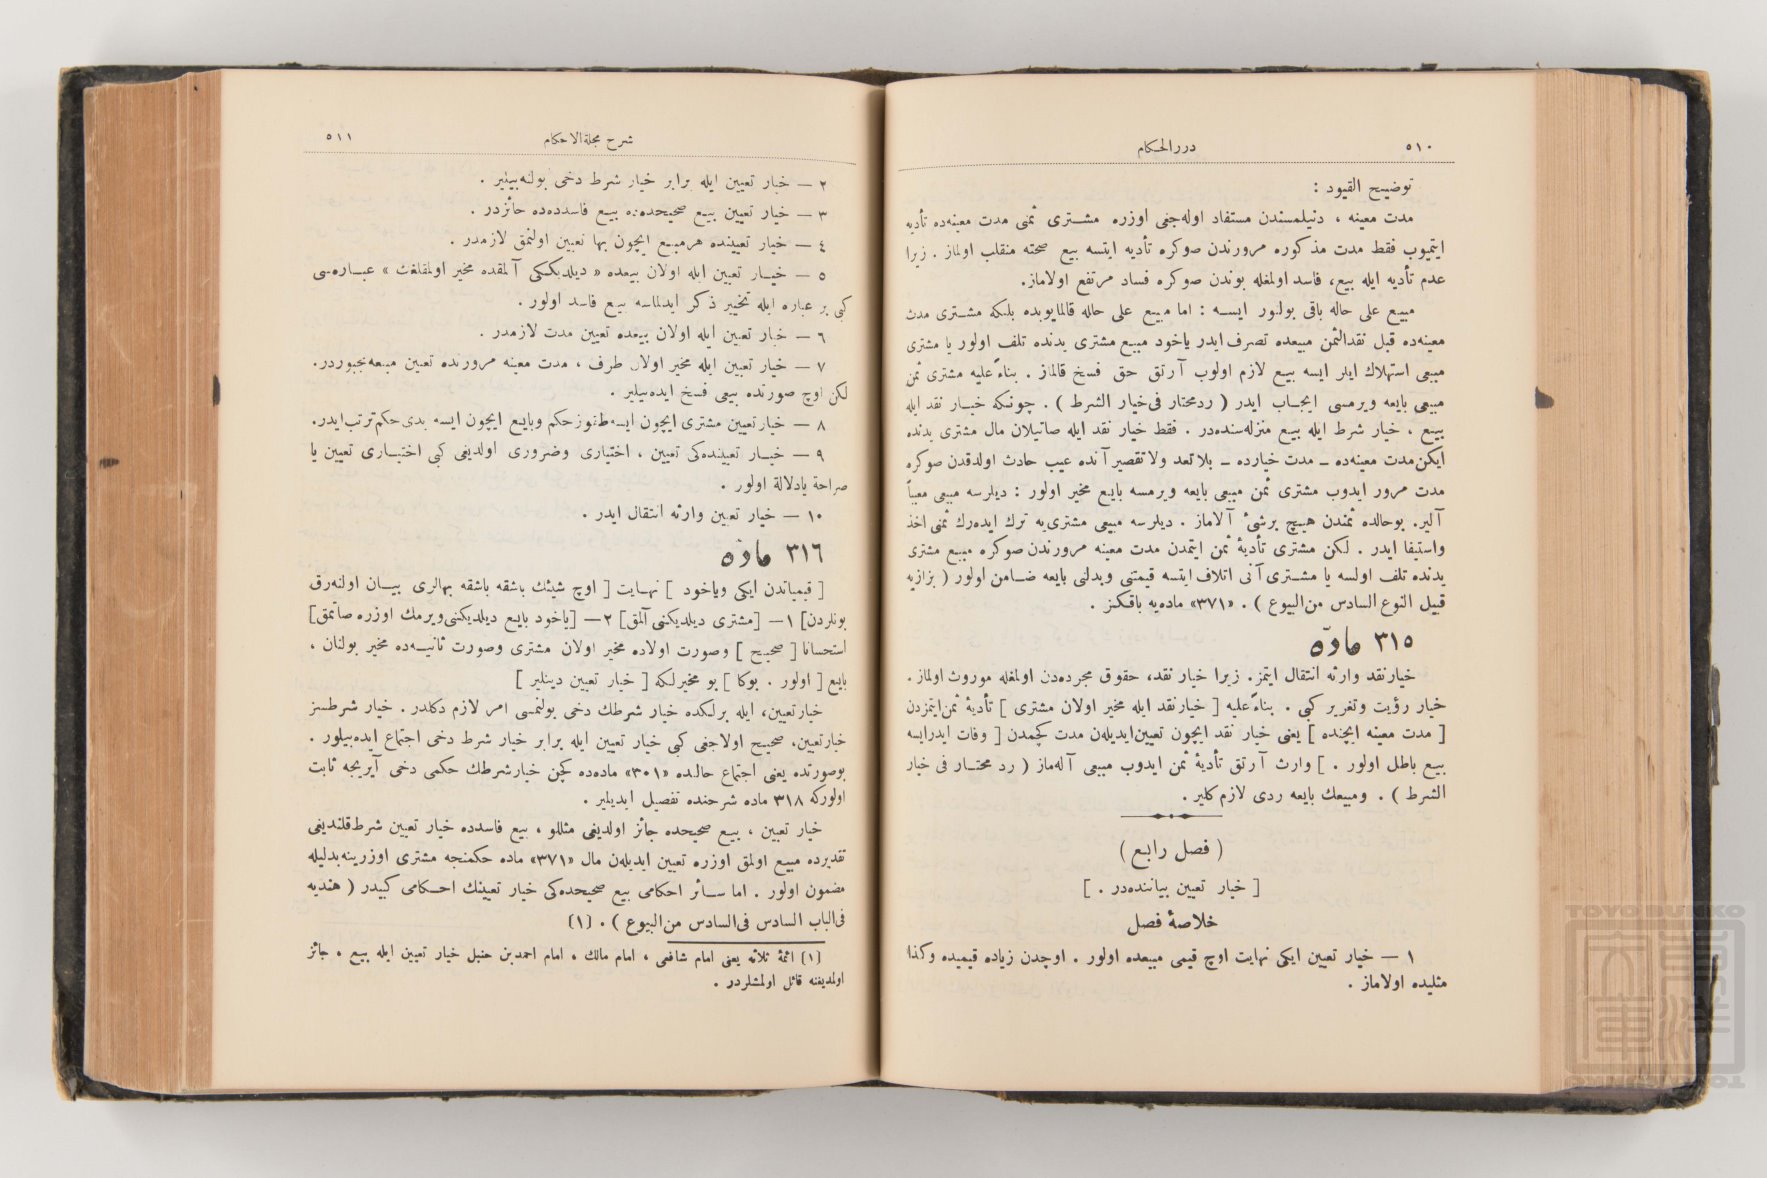 ٥١٠
دررالحكام
توضيح القيود :
مدت معينه ، دنيلمسندن مستفاد اوله‌جغى اوزره مشترى ثمنى مدت معينه‌ده تأديه
ايتميوب فقط مدت مذكوره مرورندن صوكره تأديه ايتسه بيع صحته منقلب اولماز . زيرا
عدم تأديه ايله بيع، فاسد اولمغله بوندن صوكره فساد مرتفع اولاماز.
مبيع على حاله باقى بولنور ايسه : اما مبيع على حاله قالمايوبده بلكه مشترى مدت
معينه‌ده قبل نقدالثمن مبيعده تصرف ايدر ياخود مبيع مشترى يدنده تلف اولور يا مشترى
مبيعى استهلاك ايلر ايسه بيع لازم اولوب آرتق حق فسخ قالماز . بناءً عليه مشترى ثمن
مبيعى بايعه ويرمسى ايجاب ايدر ( ردمحتار فى‌خيار الشرط ) . چونكه خيار نقد ايله
بيع ، خيار شرط ايله بيع منزله‌سنده‌در . فقط خيار نقد ايله صاتيلان مال مشترى يدنده
ايكن مدت معينه‌ده ــ مدت خيارده ــ بلاتعد ولاتقصير آنده عيب حادث اولدقدن صوكره
مدت مرور ايدوب مشترى ثمن مبيعى بايعه ويرمسه بايع مخير اولور : ديلرسه مبيعى معيباً
آلير. بوحالده ثمندن هيچ برشىء آلاماز . ديلرسه مبيعى مشترى‌يه ترك ايده‌رك ثمنى اخذ
واستيفا ايدر . لكن مشترى تأديۀ ثمن ايتمدن مدت معينه مرورندن صوكره مبيع مشترى
يدنده تلف اولسه يا مشترى آنى اتلاف ايتسه قيمتنى وبدلنى بايعه ضامن اولور ( بزازيه
قبيل النوع السادس من‌البيوع ) . «٣٧١» ماده‌يه باقكز .
٣١٥ ماده
خيارنقد وارثه انتقال ايتمز. زيرا خيار نقد، حقوق مجرده‌دن اولمغله موروث اولماز .
خيار رؤيت وتغرير كبى . بناءً عليه [ خيارنقد ايله مخير اولان مشترى ] تأديۀ ثمن‌ايتمزدن
[ مدت معينه ايچنده ] يعنى خيار نقد ايچون تعيين‌ايديلن مدت كچمدن [ وفات ايدرايسه
بيع باطل اولور . ] وارث آرتق تأديۀ ثمن ايدوب مبيعى آله‌ماز ( رد محتار فى خيار
الشرط ) . ومبيعك بايعه ردى لازم كلير .
( فصل رابع )
[ خيار تعيين بياننده‌در . ]
خلاصۀ فصل
١ — خيار تعيين ايكى نهايت اوچ قيمى مبيعده اولور . اوچدن زياده قيميده وكذا
مثليده اولاماز .
شرح مجلةالاحكام
٥١١
٢ — خيار تعيين ايله برابر خيار شرط دخى بولنه‌بيلير .
٣ — خيار تعيين بيع صحيحده‌ده بيع فاسدده‌ده جائزدر .
٤ — خيار تعيينده هرمبيع ايچون بها تعيين اولنمق لازمدر .
٥ — خيار تعيين ايله اولان بيعده « ديلديككى آلمقده مخير اولمقلغك » عباره‌سى
كبى بر عباره ايله تخيير ذكر ايدلماسه بيع فاسد اولور .
٦ — خيار تعيين ايله اولان بيعده تعيين مدت لازمدر .
٧ — خيار تعيين ايله مخير اولان طرف ، مدت معينه مرورنده تعيين مبيعه‌مجبوردر.
لكن اوچ صورتده بيعى فسخ ايده‌بيلير .
٨ — خيارتعيين مشترى ايچون ايسه‌طقوزحكم وبايع ايچون ايسه يدى‌حكم‌ترتب‌ايدر.
٩ — خيار تعيينده‌كى تعيين ، اختيارى وضرورى اولديغى كبى اختيارى تعيين يا
صراحة يادلالة اولور .
١٠ — خيار تعيين وارثه انتقال ايدر .
٣١٦ ماده
[ قيمياتدن ايكى وياخود ] نهايت [ اوچ شيئك باشقه باشقه بهالرى بيان اولنه‌رق
بونلردن] ١— [مشترى ديلديكنى آلمق] ٢— [ياخود بايع ديلديكنى‌ويرمك اوزره صاتمق]
استحسانا [ صحيح ] وصورت اولاده مخير اولان مشترى وصورت ثانيه‌ده مخير بولنان ،
بايع [ اولور . بوكا ] بو مخيرلكه [ خيار تعيين دينلير ]
خيارتعيين، ايله برلكده خيار شرطك دخى بولنمسى امر لازم دكلدر . خيار شرطسز
خيارتعيين، صحيح اولاجغى كبى خيار تعيين ايله برابر خيار شرط دخى اجتماع ايده‌بيلور .
بوصورتده يعنى اجتماع حالده «٣٠١» ماده‌ده كچن خيارشرطك حكمى دخى آيريجه ثابت
اولوركه ٣١٨ ماده شرحنده تفصيل ايديلير .
خيار تعيين ، بيع صحيحده جائز اولديغى مثللو ، بيع فاسدده خيار تعيين شرط‌قلنديغى
تقديرده مبيع اولمق اوزره تعيين ايديلن مال «٣٧١» ماده حكمنجه مشترى اوزرينه‌بدليله
مضمون اولور . اما سائر احكامى بيع صحيحده‌كى خيار تعيينك احكامى كبيدر ( هنديه
فى‌الباب السادس فى‌السادس من‌البيوع ) . (١)
(١) ائمۀ ثلاثه يعنى امام شافعى ، امام مالك ، امام احمدبن حنبل خيار تعيين ايله بيع ، جائز
اولمديغنه قائل اولمشلردر .
TOYO BUNKO